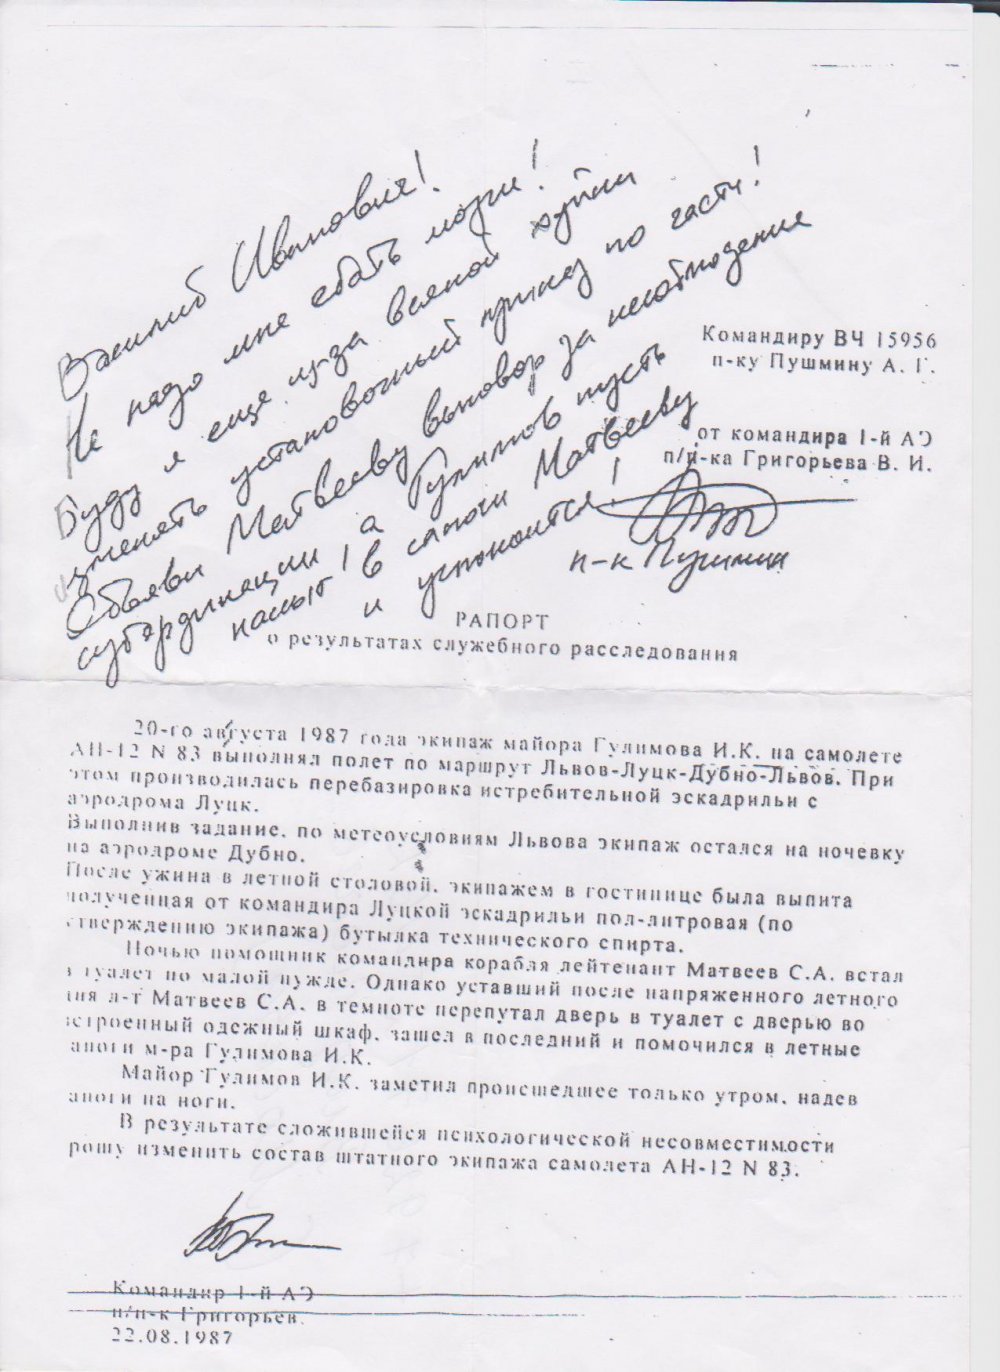 Василий Иванович!
Не надо мне ебать мозги!
Буду я еще из-за всякой хуйни
изменять установочный приказ по части!
Объяви Матвееву выговор за несоблюдение
субординации, а Гулимов пусть
нассыт в сапоги Матвееву
и успокоится!
п-к Пушмин
Командиру ВЧ 15956
п-ку Пушмину А. Г.
от командира 1-й АЭ
п/п-ка Григорьева В. И.
РАПОРТ
о результатах служебного расследования
20-го августа 1987 года экипаж майора Гулимова И.К. на самолете
АН-12 N 83 выполнял полет по маршрут Львов-Луцк-Дубно-Львов. При
этом производилась перебазировка истребительной эскадрильи с
аэродрома Луцк.
Выполнив задание, по метеоусловиям Львова экипаж остался на ночевку
на аэродроме Дубно.
После ужина в летной столовой, экипажем в гостинице была выпита
полученная от командира Луцкой эскадрильи пол-литровая (по
тверждению экипажа) бутылка технического спирта.
Ночью помощник командира корабля лейтенант Матвеев С.А. встал
в туалет по малой нужде. Однако уставший после напряженного летного
дня л-т Матвеев С.А. в темноте перепутал дверь в туалет с дверью во
встроенный одежный шкаф, зашел в последний и помочился в летные
апоги м-ра Гулимова И.К.
Майор Гулимов И.К. заметил происшедшее только утром, надев
апоги на ноги.
В результате сложившейся психологической несовместимости
рошу изменить состав штатного экипажа самолета АН-12 N 83.
Командир 1-й АЭ
п/п-к Григорьев.
22.08.1987